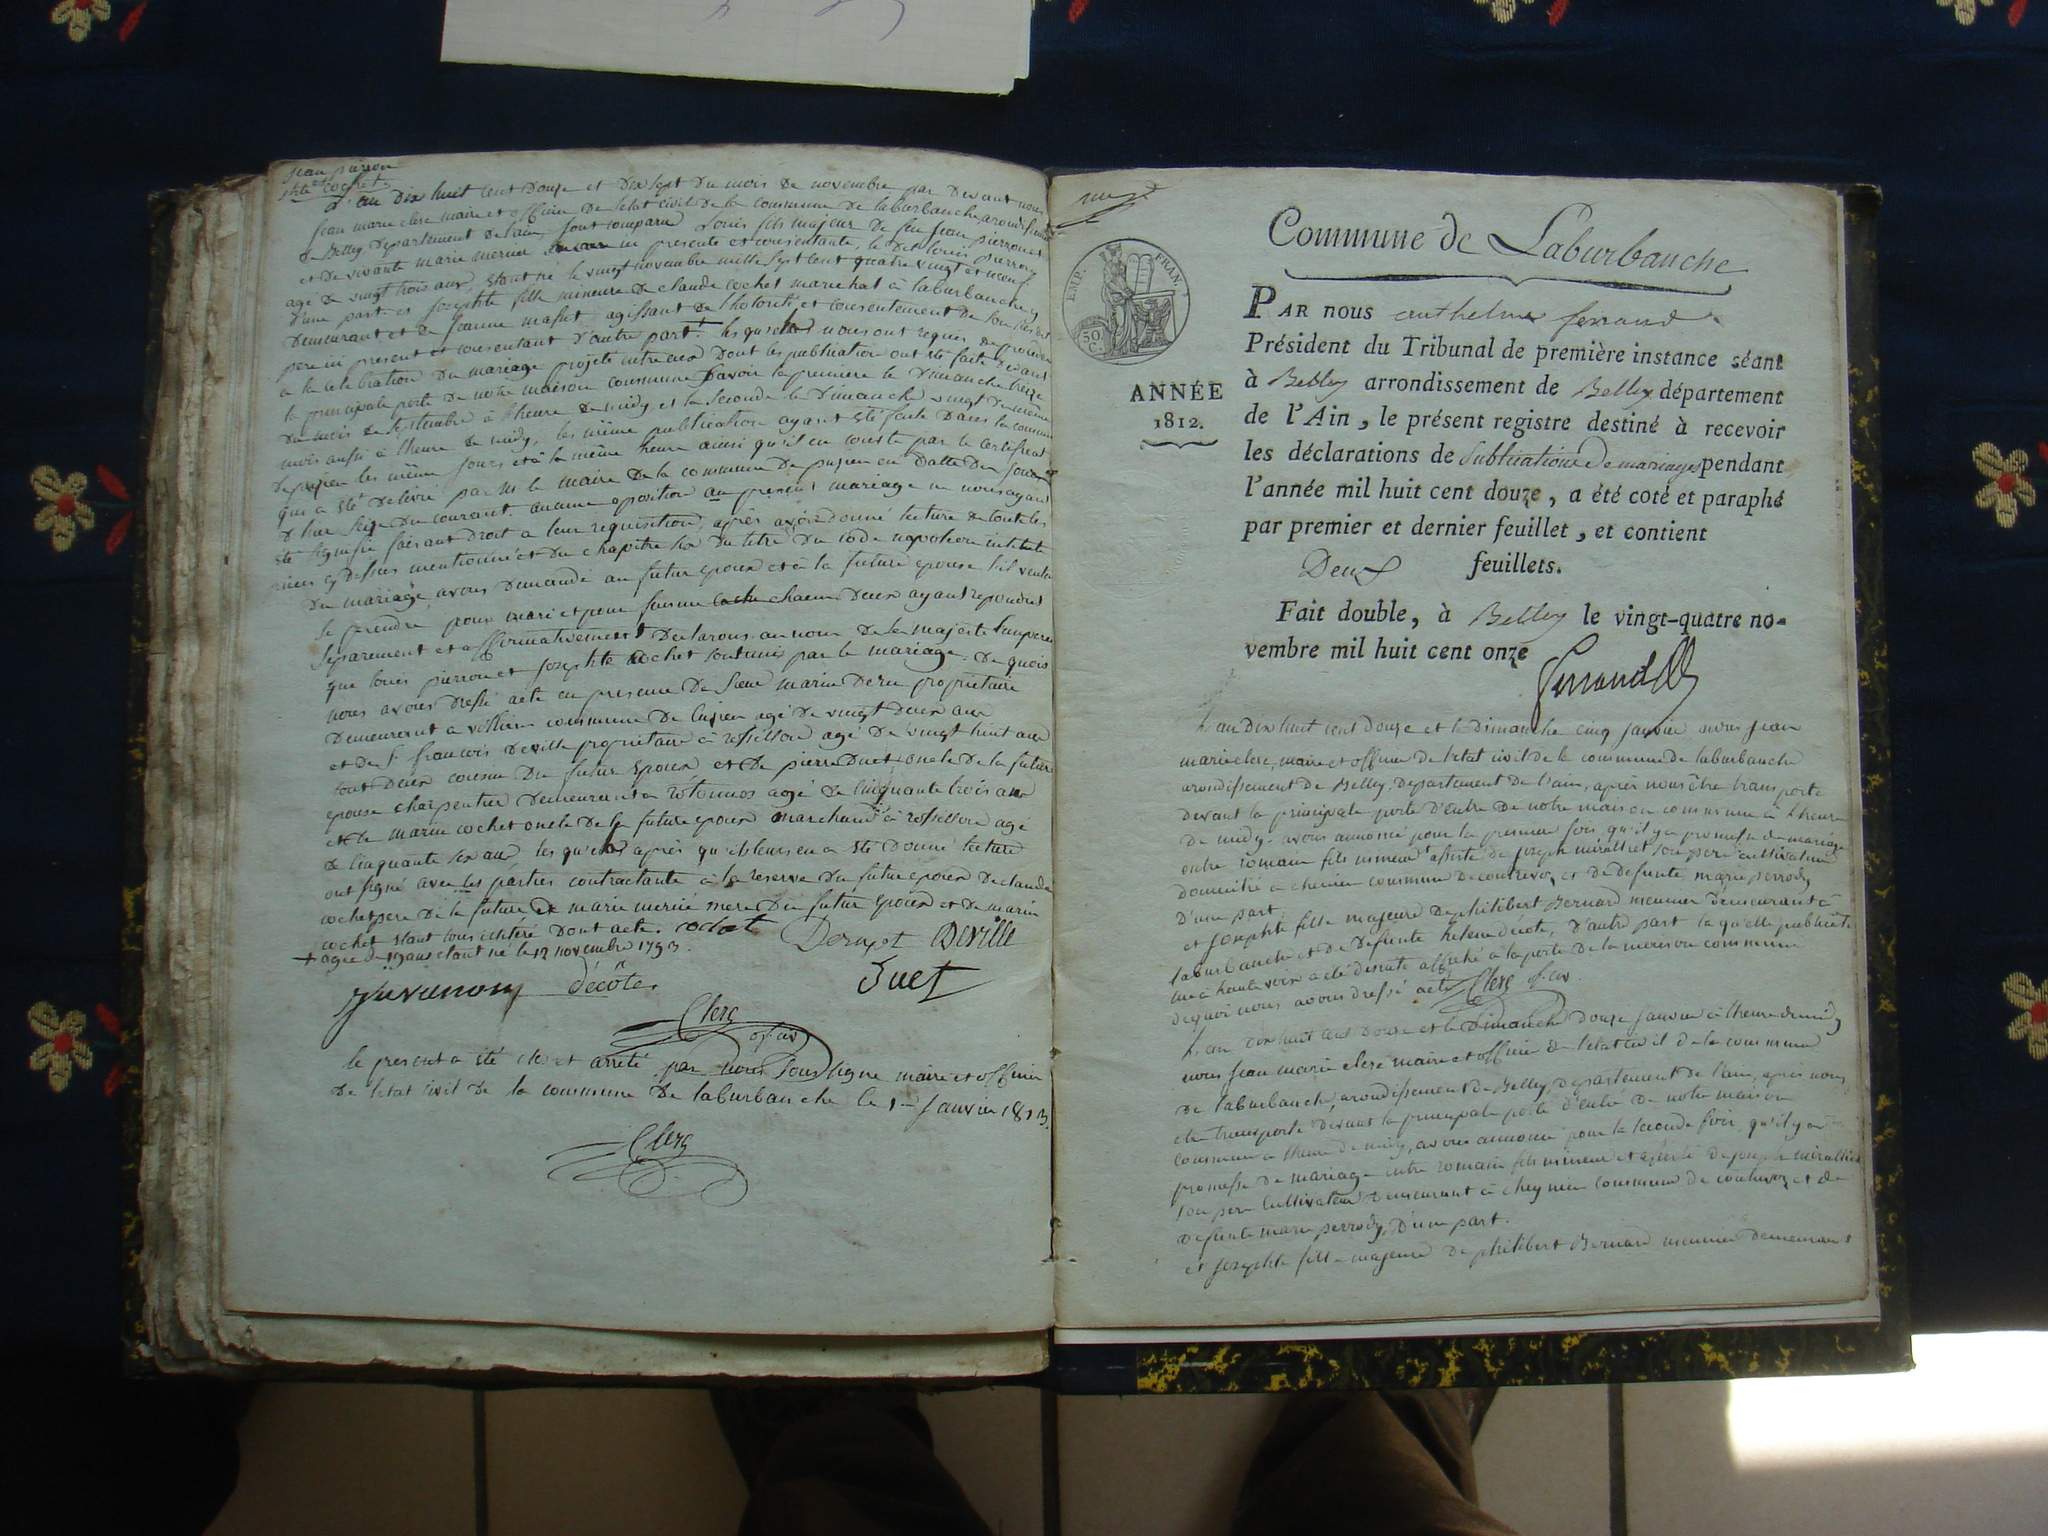 jean pierron
et cochet
L'an Dix huit cent Douze et Dix sept du mois de novembre par devant nous
jean marie clerc maire et officier de l'etat civil de la commune de laburbanche, arondissement
de Belley, Departement de l'ain, sont comparu Louis fils majeur de feu jean pierron et
et de vivante marie mernier presente et consentante, le dit louis pierron
agé de vingt trois ans, etant né le vingt novembre mille sept cent quatre vingt et neuf
d'une part. et josephte fille mineure de claude cochet marechal à laburbanche y
Demeurant et de jeanne agissant de l'hotorité et consentement de son
pere ici present et consentant d'autre part + les quels nous ont requis de proceder
a la celebration du mariage projeté entre eux dont les publication ont été faite devant
la principale porte de notre maison commune savoir la premiere le Dimanche treize
du mois de septembre à l'heure de midy et la seconde le Dimanche vingt du même
mois aussi à l'heure de midy, les même publication ayant été faite dans la commune
de les même jours et à la même heure ainsi qu'il en conste par le certificat
qui a été delivré par Mr le maire de la commune de pugieu en datte du jour
d'hier seize du courant. aucune oposition au present mariage ne nous ayant
été signifié faisant Droit a leur requisition, après avoir donné lecture de toute les
pieces cy dessus mentionné et du chapitre six du titre du code napoleon intitulé
Du mariage, avons demandé au futur epoux et à la future epouse s'il veulent
se prendre pour mari et pour femme chacun deux ayant repondut
separement et affirmativement Declarons au nom de sa majesté l'empereur
que louis pierron et josephte cochet sont unis par le mariage. De quoi
nous avons dressé acte en presence de sieur marin proprietaire
Demeurant a commune de agé de vingt deux ans
et de Sr francois Deville proprietaire à rossillon agé de vingt huit ans
tout deux cousin du futur epoux et de pierre Duet oncle de la future
epouse charpentier demeurant a rotonnos agé de cinquante trois ans
et de marin cochet oncle de la future epouse marchand à rossillon agé
de cinquante six ans les quels après qu'il leur en a été donné lecture
ont signé avec les parties contractante à la reserve du futur epoux de claude
cochet pere de la future et marie mernié mere du futur epoux et de marin
cochet etant tous illiteré dont acte. cochet
+ agée de 19 ans etant né le 12 novembre 1793.
Deville
décôte
Suet
Clerc
of. civ
le present a été clos et arrêté par nous sous signé maire et officier
de l'etat civil de la commune de laburbanche le 1er janvier 1813.
Clerc
un
EMP. FRAN.
50 C.
ANNÉE
1812.
Commune de Laburbanche
PAR NOUS anthelme ferrand
Président du Tribunal de première instance séant
à Belley arrondissement de Belley département
de l'Ain, le présent registre destiné à recevoir
les déclarations de Publications de mariages pendant
l'année mil huit cent douze, a été coté et paraphé
par premier et dernier feuillet, et contient
Deux feuillets.
Fait double, à Belley le vingt-quatre no-
vembre mil huit cent onze
Ferrand
L'an dix huit cent douze et le dimanche cinq janvier nous jean
marie clerc, maire et officier de l'etat civil de la commune de laburbanche
arondissement de Belley, departement de l'ain, après nous être transporté
devant la principale porte d'entré de notre maison commune à l'heure
de midy. avons annoncé pour la premiere fois, qu'il y a promesse de mariage
entre romain fils mineur et assisté de joseph miralliet son pere cultivateur
domicilié à cheinieu commune de contrevoz, et de defunte marie perrody
D'une part.
et josephte fille majeure de philibert Bernard meunier demeurant à
laburbanche et de defunte helene décôte, d'autre part la qu'elle publication
lue à haute voix a été de suite affiché à la porte de la maison commune
de quoi nous avons dressé acte Clerc of. civ.
L'an dix huit cent douze et le dimanche douze janvier à l'heure de midy
nous jean marie clerc maire et officier de l'etat civil de la commune
de laburbanche, arondissement de Belley, departement de l'ain, après nous
etre transporté devant la principale porte d'entré de notre maison
commune à l'heure de midy, avons annoncé pour la seconde fois qu'il y a
promesse de mariage entre romain fils mineur et assisté de joseph miralliet
son pere cultivateur demeurant à cheynieu commune de contrevoz et de
defunte marie perrody, D'une part.
et josephte fille majeure de philibert Bernard meunier demeurant